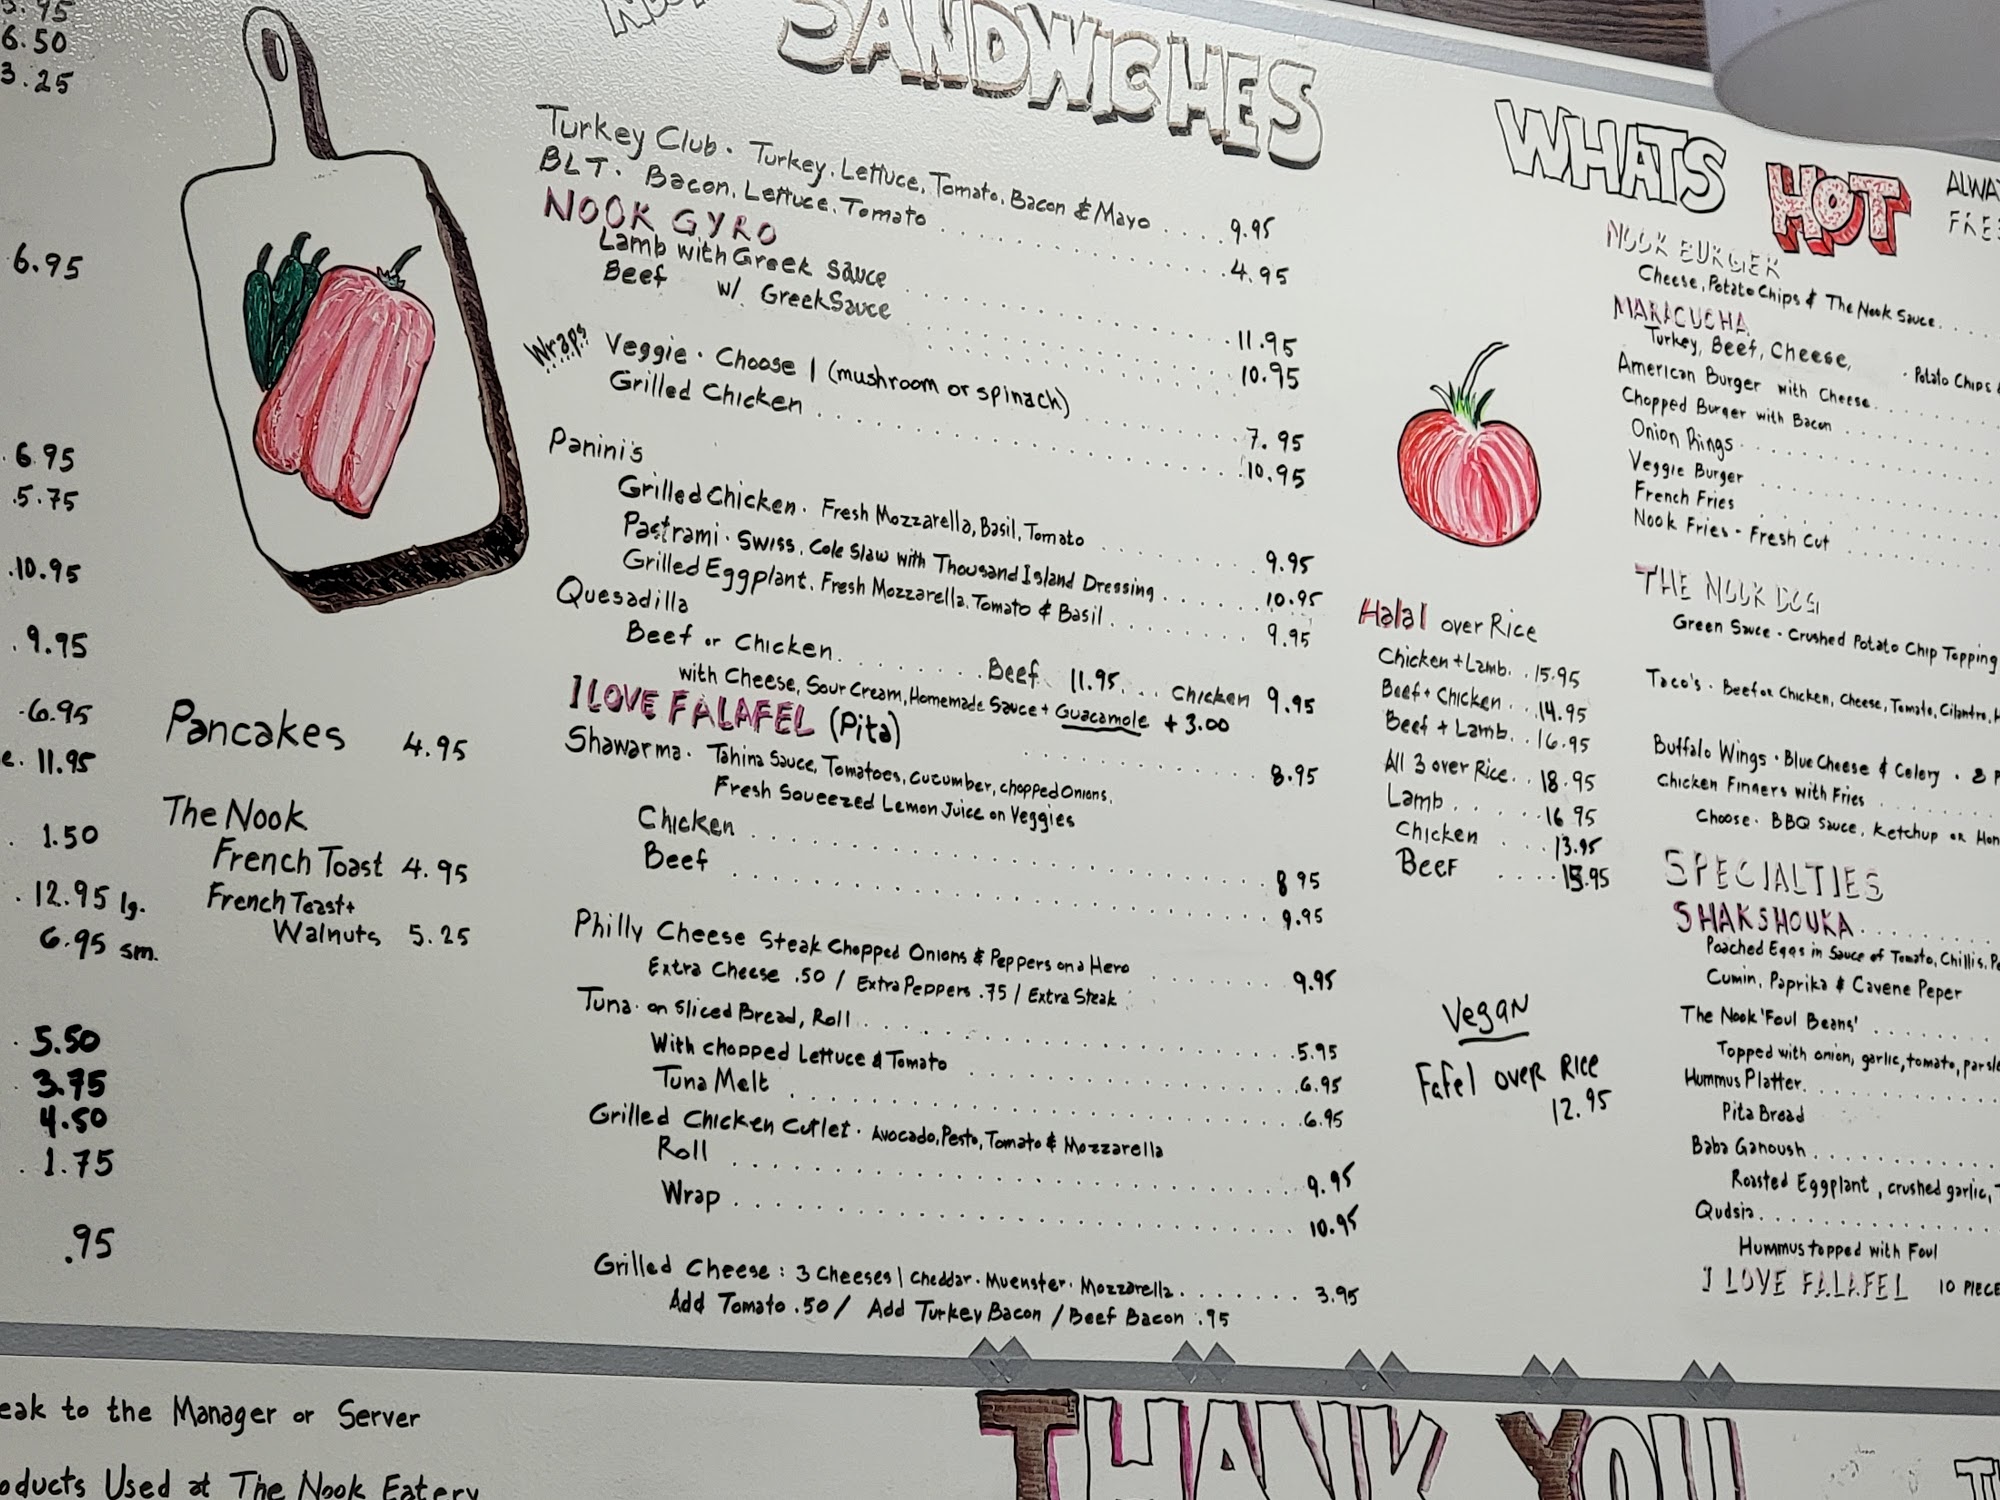 3.95
6.50
3.25
6.95
6.95
.5.75
.10.95
.9.95
.6.95
e. 11.95
. 1.50
. 12.95 lg.
6.95 sm.
. 5.50
. 3.75
4.50
. 1.75
.95
Pancakes 4.95
The Nook
French Toast 4.95
French Toast+
Walnuts 5.25
SANDWICHES
Turkey Club. Turkey, Lettuce, Tomato, Bacon & Mayo .... 9.95
BLT. Bacon, Lettuce, Tomato .... 4.95
NOOK GYRO
Lamb with Greek Sauce .... 11.95
Beef w/ Greek Sauce .... 10.95
Wraps
Veggie. Choose 1 (mushroom or spinach) .... 7.95
Grilled Chicken .... 10.95
Panini's
Grilled Chicken. Fresh Mozzarella, Basil, Tomato .... 9.95
Pastrami. Swiss, Cole Slaw with Thousand Island Dressing .... 10.95
Grilled Eggplant. Fresh Mozzarella, Tomato & Basil .... 9.95
Quesadilla
Beef or Chicken .... Beef 11.95 ... Chicken 9.95
with Cheese, Sour Cream, Homemade Sauce + Guacamole + 3.00
I LOVE FALAFEL (Pita) .... 8.95
Shawarma. Tahina Sauce, Tomatoes, Cucumber, chopped Onions,
Fresh Squeezed Lemon Juice on Veggies
Chicken .... 8 95
Beef .... 9.95
Philly Cheese Steak Chopped Onions & Peppers on a Hero .... 9.95
Extra Cheese .50 / Extra Peppers .75 / Extra Steak
Tuna. on Sliced Bread, Roll .... 5.95
With chopped Lettuce & Tomato .... 6.95
Tuna Melt .... 6.95
Grilled Chicken Cutlet. Avocado, Pesto, Tomato & Mozzarella
Roll .... 9.95
Wrap .... 10.95
Grilled Cheese: 3 Cheeses | Cheddar. Muenster. Mozzarella .... 3.95
Add Tomato .50 / Add Turkey Bacon / Beef Bacon .95
Halal over Rice
Chicken + Lamb .. 15.95
Beef + Chicken ... 14.95
Beef + Lamb .. 16.95
All 3 over Rice .. 18.95
Lamb .... 16 95
Chicken ... 13.95
Beef .... 15.95
Vegan
Fafel over Rice
12.95
WHATS HOT
NOOK BURGER
Cheese, Potato Chips & The Nook Sauce
MARACUCHA
Turkey, Beef, Cheese, . Potato Chips
American Burger with Cheese
Chopped Burger with Bacon
Onion Rings
Veggie Burger
French Fries
Nook Fries - Fresh Cut
THE NOOK DOG
Green Sauce. Crushed Potato Chip Topping
Taco's. Beef or Chicken, Cheese, Tomato, Cilantro,
Buffalo Wings. Blue Cheese & Celery . 8
Chicken Finners with Fries
Choose. BBQ Sauce, Ketchup or Hon
SPECIALTIES
SHAKSHOUKA
Poached Eggs in Sauce of Tomato, Chillis,
Cumin, Paprika & Cayene Peper
The Nook 'Foul Beans'
Topped with onion, garlic, tomato, parsle
Hummus Platter
Pita Bread
Baba Ganoush
Roasted Eggplant, crushed garlic,
Qudsia
Hummus topped with Foul
I LOVE FALAFEL 10 PIECE
eak to the Manager or Server
oducts Used at The Nook Eatery
THANK YOU